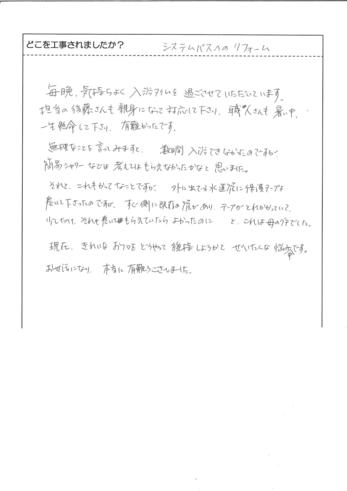 どこを工事されましたか？ システムバスへのリフォーム
毎晩、気持ちよく入浴タイムを過ごさせていただいています。
担当の後藤さんも親身になって対応して下さり、職人さんも暑い中、
一生懸命して下さり、有難かったです。
無理なことを言ってみますと、数日間入浴できなかったのですが
簡易シャワーなどは考えてはもらえなかったかなと思いました。
それと、これもかってなことですが、外に出ている水道管に保護テープは
巻いて下さったのですが、すぐ側に既存の管があり、テープがとれかかっていて、
少しだけ、それも巻いてもらえていたらよかったのに と、これは母のグチでした。
現在、きれいなおフロをどうやって維持しようかとぜいたくな悩みです。
お世話になり、本当に有難うございました。